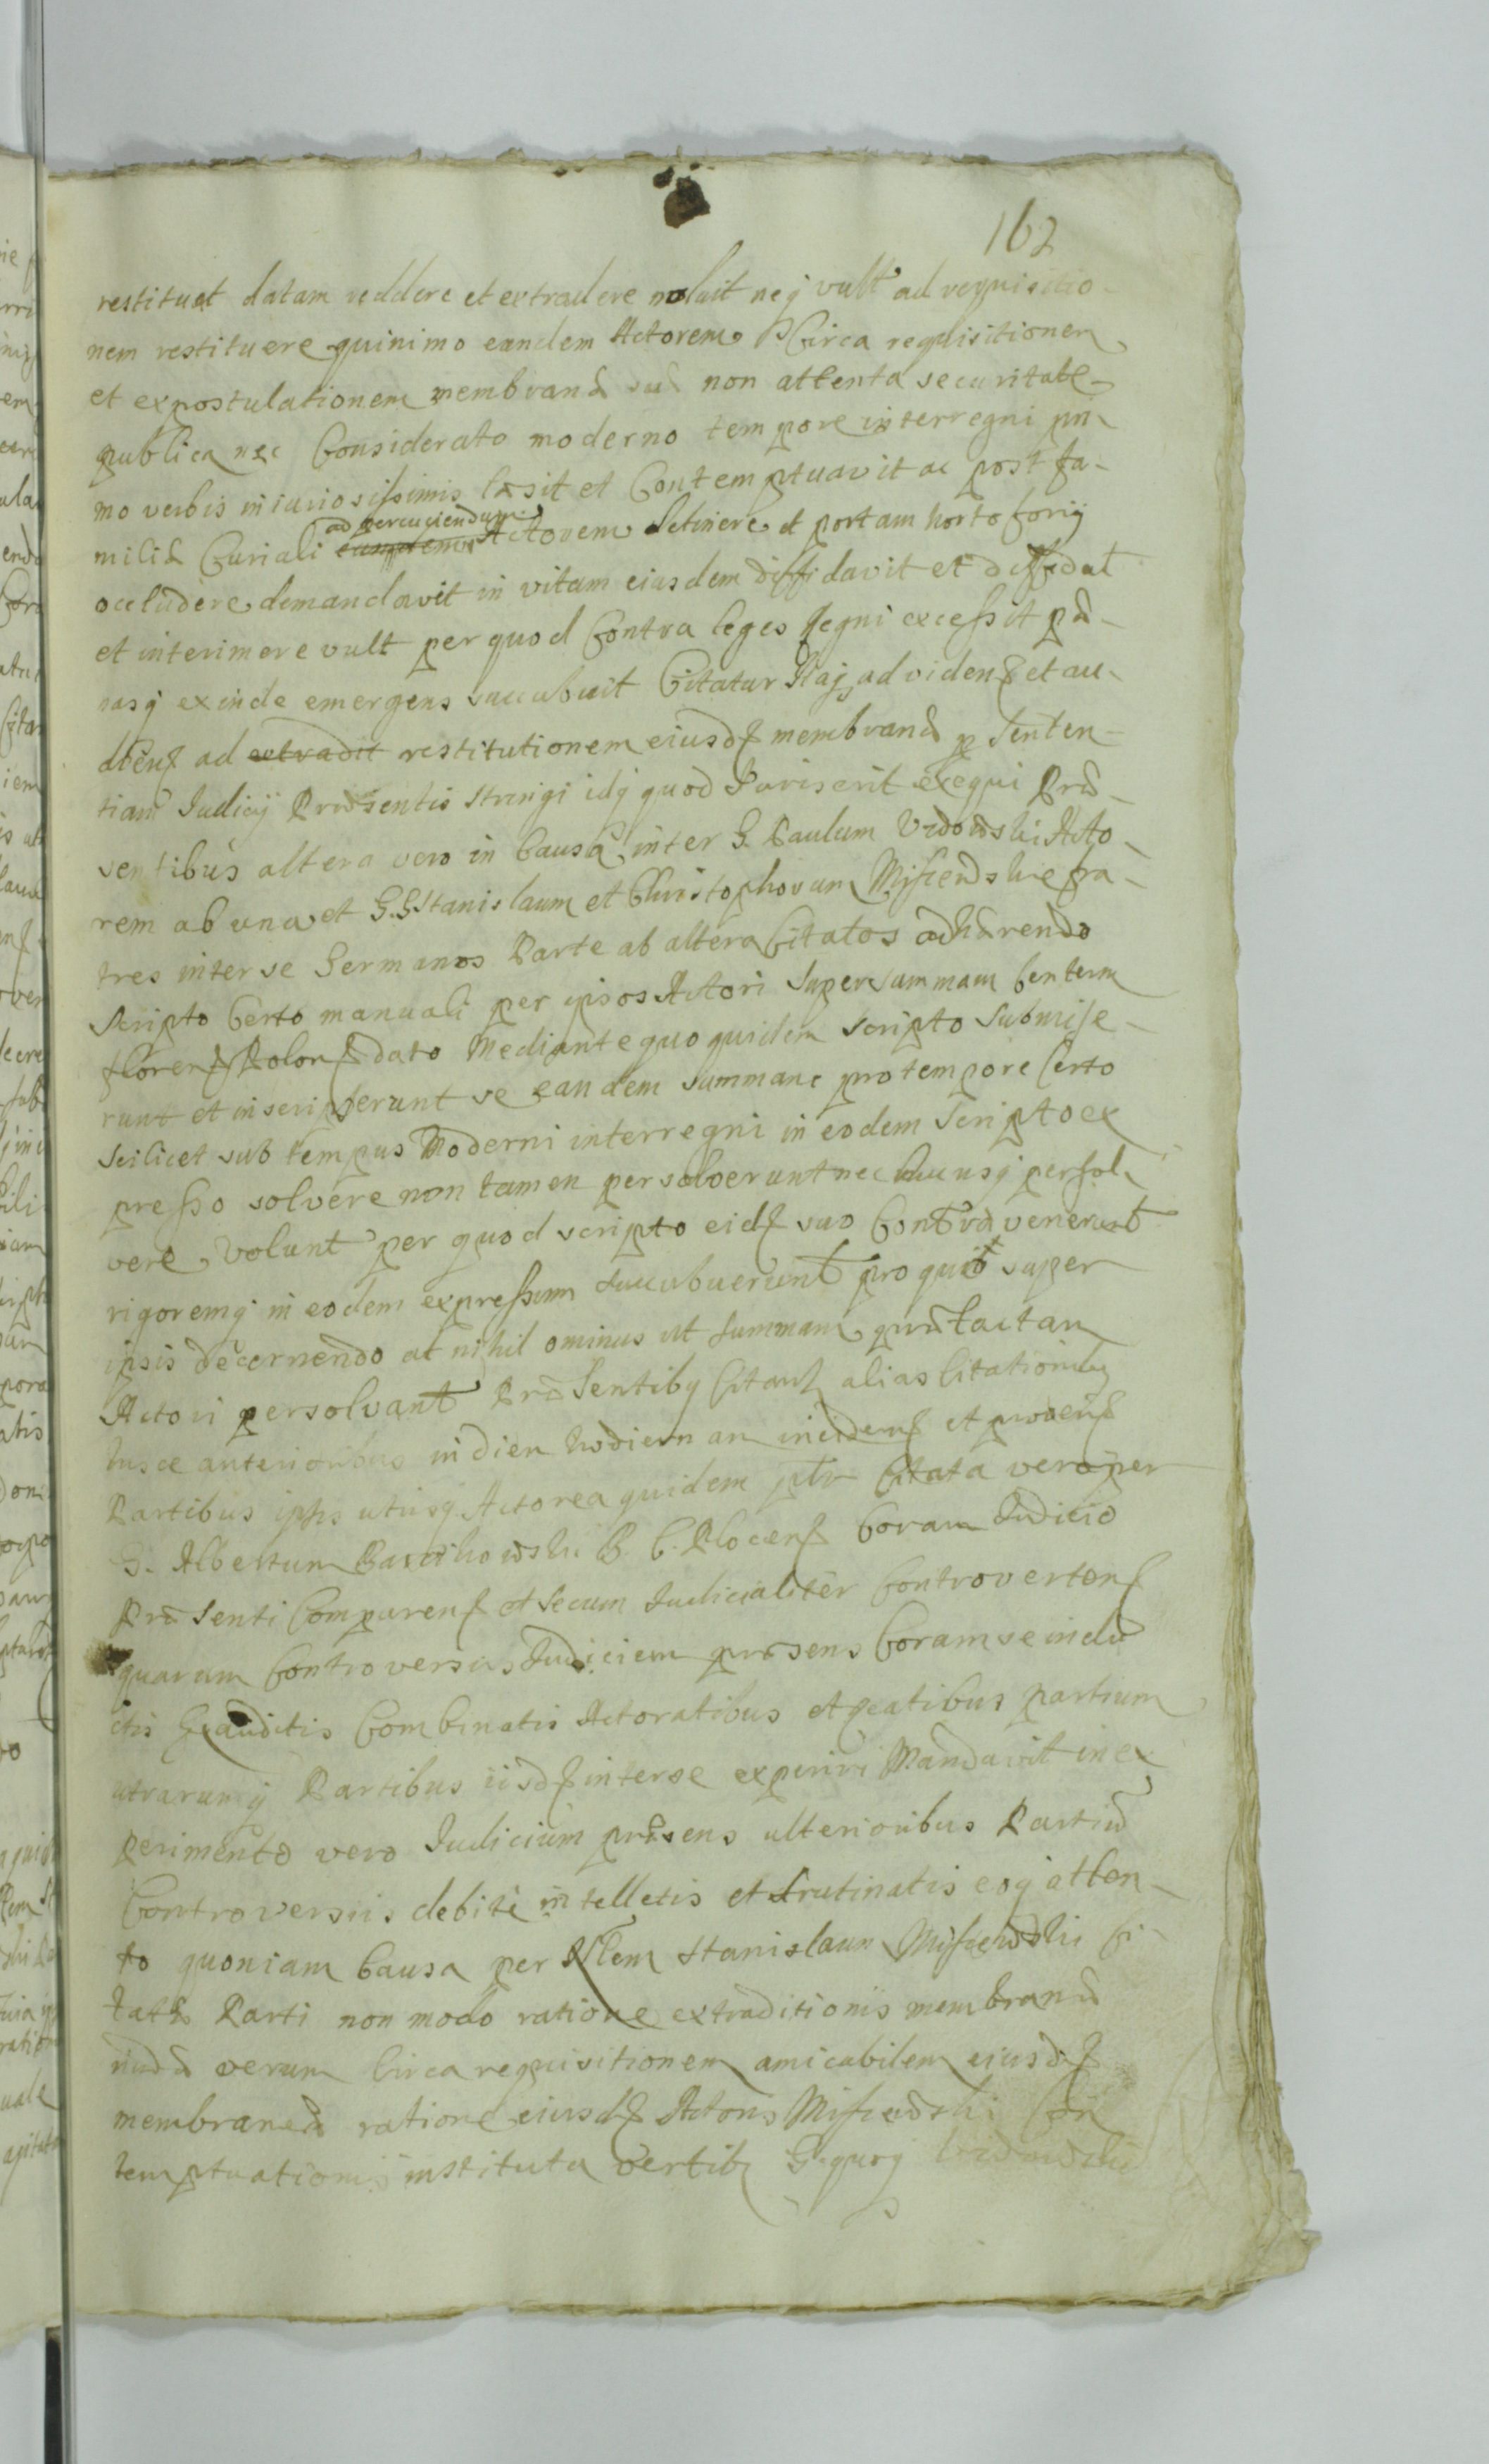 162
restituat datam reddere et extradere noluit neq vult ad requisitio-
nem restituere quinimo eandem Actorem Circa requisitionem
et expostulationem membranæ suæ non attenta securitate
publica nec Considerato moderno tempore interregni pri
mo verbis iniuriosissimis læsit et Contemptuavit ac post fa-
miliæ Curiali ad percuciendum Actorem detinere et portam horto
occludere demandavit in vitam eiusdem diffidavit et diffidat
et interimere vult per quod Contra leges Regni excessit pæ-
nasq exinde emergens succubuit Citatur Itaq ad videnf et au-
dienf ad extradit restitutionem eiusdf membranæ p Senten-
tiam Iudicij Præsentis stringi idq quod Iuris erit exequi Præ-
sentibus altera vero in Causa inter G. Paulum Vidowski Acto-
rem ab una et G.G. Stanislaum et Christophorum Myscewskie fra-
tres inter se Germanos Parte ab altera Citatos adhærendo
Scripto Certo manuali per ipsos Actori Super summam Centum
florenf Polonf dato Mediante quo quidem scripto submise-
runt et inscripserunt se eandem summam pro tempore Certo
Scilicet sub tempus Moderni interregni in eodem Scripto ex
presso solvere non tamen persolverunt nec hucusq persol
vere volunt per quod scripto eidf suo Contra venerunt
rigoremq in eodem expressum succubuerunt pro quo super
ipsis decernendo at nihil ominus ut summam prætactam
Actori persolvant Præsentibq Citant alias Citationibq
husce anterioribus in diem hodiernam incidenf et provenf
Partibus ipsis utrisq Actorea quidem ptr Citata vero per
G. Albertum B. C. Plocenf Coram Iudicio
Præsenti Comparenf et secum Iudicialiter Controvertenf
quarum Controversias Iudicium præsens Coram se indu
ctis Exauditis Combinatis Actoratibus et partium
utrarumq Partibus iisdf inter se experiri Mandavit in ex
perimento vero Iudicium præsens ulterioribus Partiū
Controversiis debite intelletis et scrutinatis eoq atten-
to quoniam Causa per Stanislaum Myscewski Ci-
tatæ Parti non modo ratione extraditionis membranæ
nudæ verum Circa requisitionem amicabilem eiusdf
membranæ ratione eiusdf Actoris Miscewski Con
temptuationis instituta vertitq G. quoq Vidowski